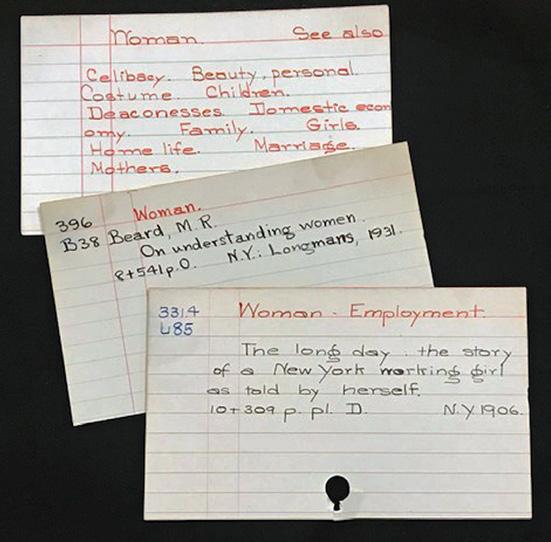 Woman. See also
Celibacy. Beauty, personal.
Costume. Children.
Deaconesses. Domestic econ
omy. Family. Girls.
Home life. Marriage.
Mothers.
396 Woman.
B38 Beard, M.R.
On understanding women.
8+541p.O. N.Y.: Longmans, 1931.
331.4 Woman - Employment.
L85
The long day. the story
of a New York working girl
as told by herself.
10+309 p. pl. D. N.Y 1906.